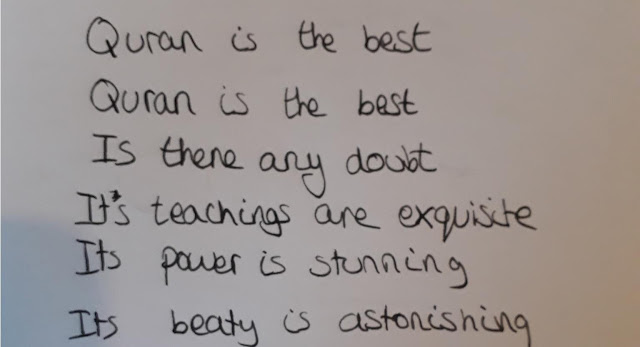 Quran is the best
Quran is the best
Is there any doubt
It's teachings are exquisite
Its power is stunning
Its beaty is astonishing